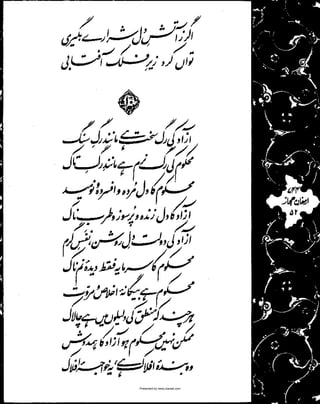 اگر ز آتش دل شرارے بگیری
تواں کرد زیرِ فلک آفتابی
آزاد کی رگ سخت ہے مانند رگِ سنگ
محکوم کی رگ نرم ہے مانند رگِ تاک
محکوم کا دل مردہ و افسردہ و نومید
آزاد کا دل زندہ و پرسوز و طرب ناک
آزاد کی دولت دلِ روشن، نفسِ گرم
محکوم کا سرمایہ فقط دیدۂ نمناک
محکوم ہے بیگانۂ اخلاص و مروت
ہرچند کہ منطق کی دلیلوں میں ہے چالاک
ممکن نہیں محکوم ہو آزاد کا ہمدوش
وہ بندۂ افلاک ہے، یہ خواجۂ افلاک
ارمغان حجاز
۵۲
Presented by www.ziaraat.com